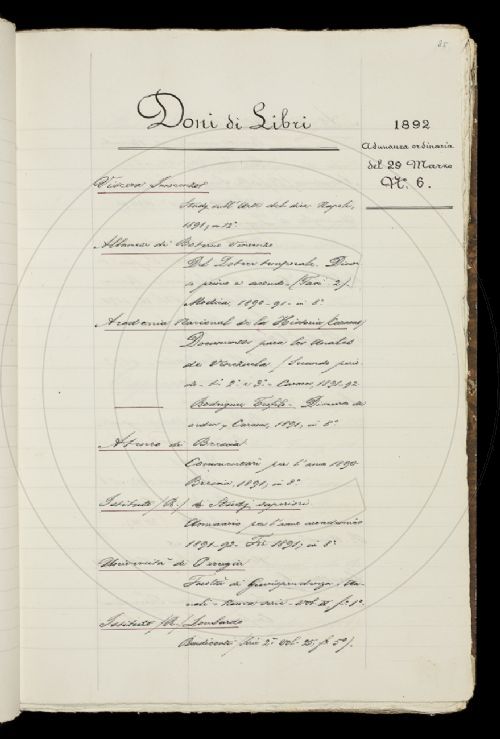 85
Doni di Libri
1892
Adunanza ordinaria
del 29 Marzo
N.º 6.
Viscera
Study sull' del Napoli,
1891, in 12º
Albanese di Boterno Vincenzo
Del Potere temporale.
primo e secondo (Tomi 2).
Modica, 1890-91- in 8º
Academia Nacional de la Historia (Caracas)
Documentos para los Anales
de Venezuela (Segundo perio-
do- 1º 2º e 3º- Caracas, 1891-92
Rodriguez - Discurso de
Caracas, 1891, in 8º
Ateneo di Brescia
Commentari per l'anno 1890
Brescia, 1891, in 8º
Istituto (R.) di Studj superiori
Annuario per l'anno accademico
1891-92- 1891, in 8º
Università di Perugia
Facoltà di Giurisprudenza, An-
nali - Nuova serie - Vol. II fº 1º
Istituto (R.) Lombardo
Rendiconti, Serie 2ª Vol. 25, fº 5º).